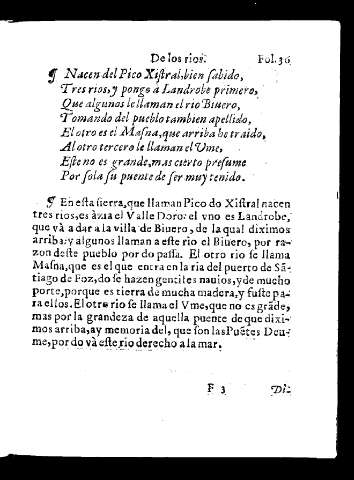 De los rios. Fol. 36
¶ Nacen del Pico Xistral, bien sabido,
Tres rios, y pongo à Landrobe primero,
Que algunos le llaman el rio Biuero,
Tomando del pueblo tambien apellido,
El otro es el Masna, que arriba he traido,
Al otro tercero le llaman el Vme,
Este no es grande, mas cierto presume
Por sola su puente de ser muy tenido.
¶ En esta sierra, que llaman Pico do Xistral nacen
tres rios, es àzia el Valle Doro: el vno es Landrobe,
que và a dar a la villa de Biuero, de la qual diximos
arriba: y algunos llaman a este rio el Biuero, por ra-
zon deste pueblo por do passa. El otro rio se llama
Masna, que es el que entra en la ria del puerto de Sã-
tiago de Foz, do se hazen gentiles nauios, y de mucho
porte, porque es tierra de mucha madera, y fuste pa-
ra ellos. El otro rio se llama el Vme, que no es grãde,
mas por la grandeza de aquella puente de que dixi-
mos arriba, ay memoria del, que son las Puẽtes Deu-
me, por do và este rio derecho a la mar.
F 3 Di-